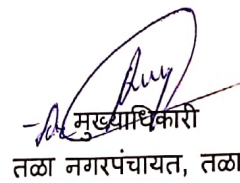 मुख्याधिकारी
तळा नगरपंचायत, तळा